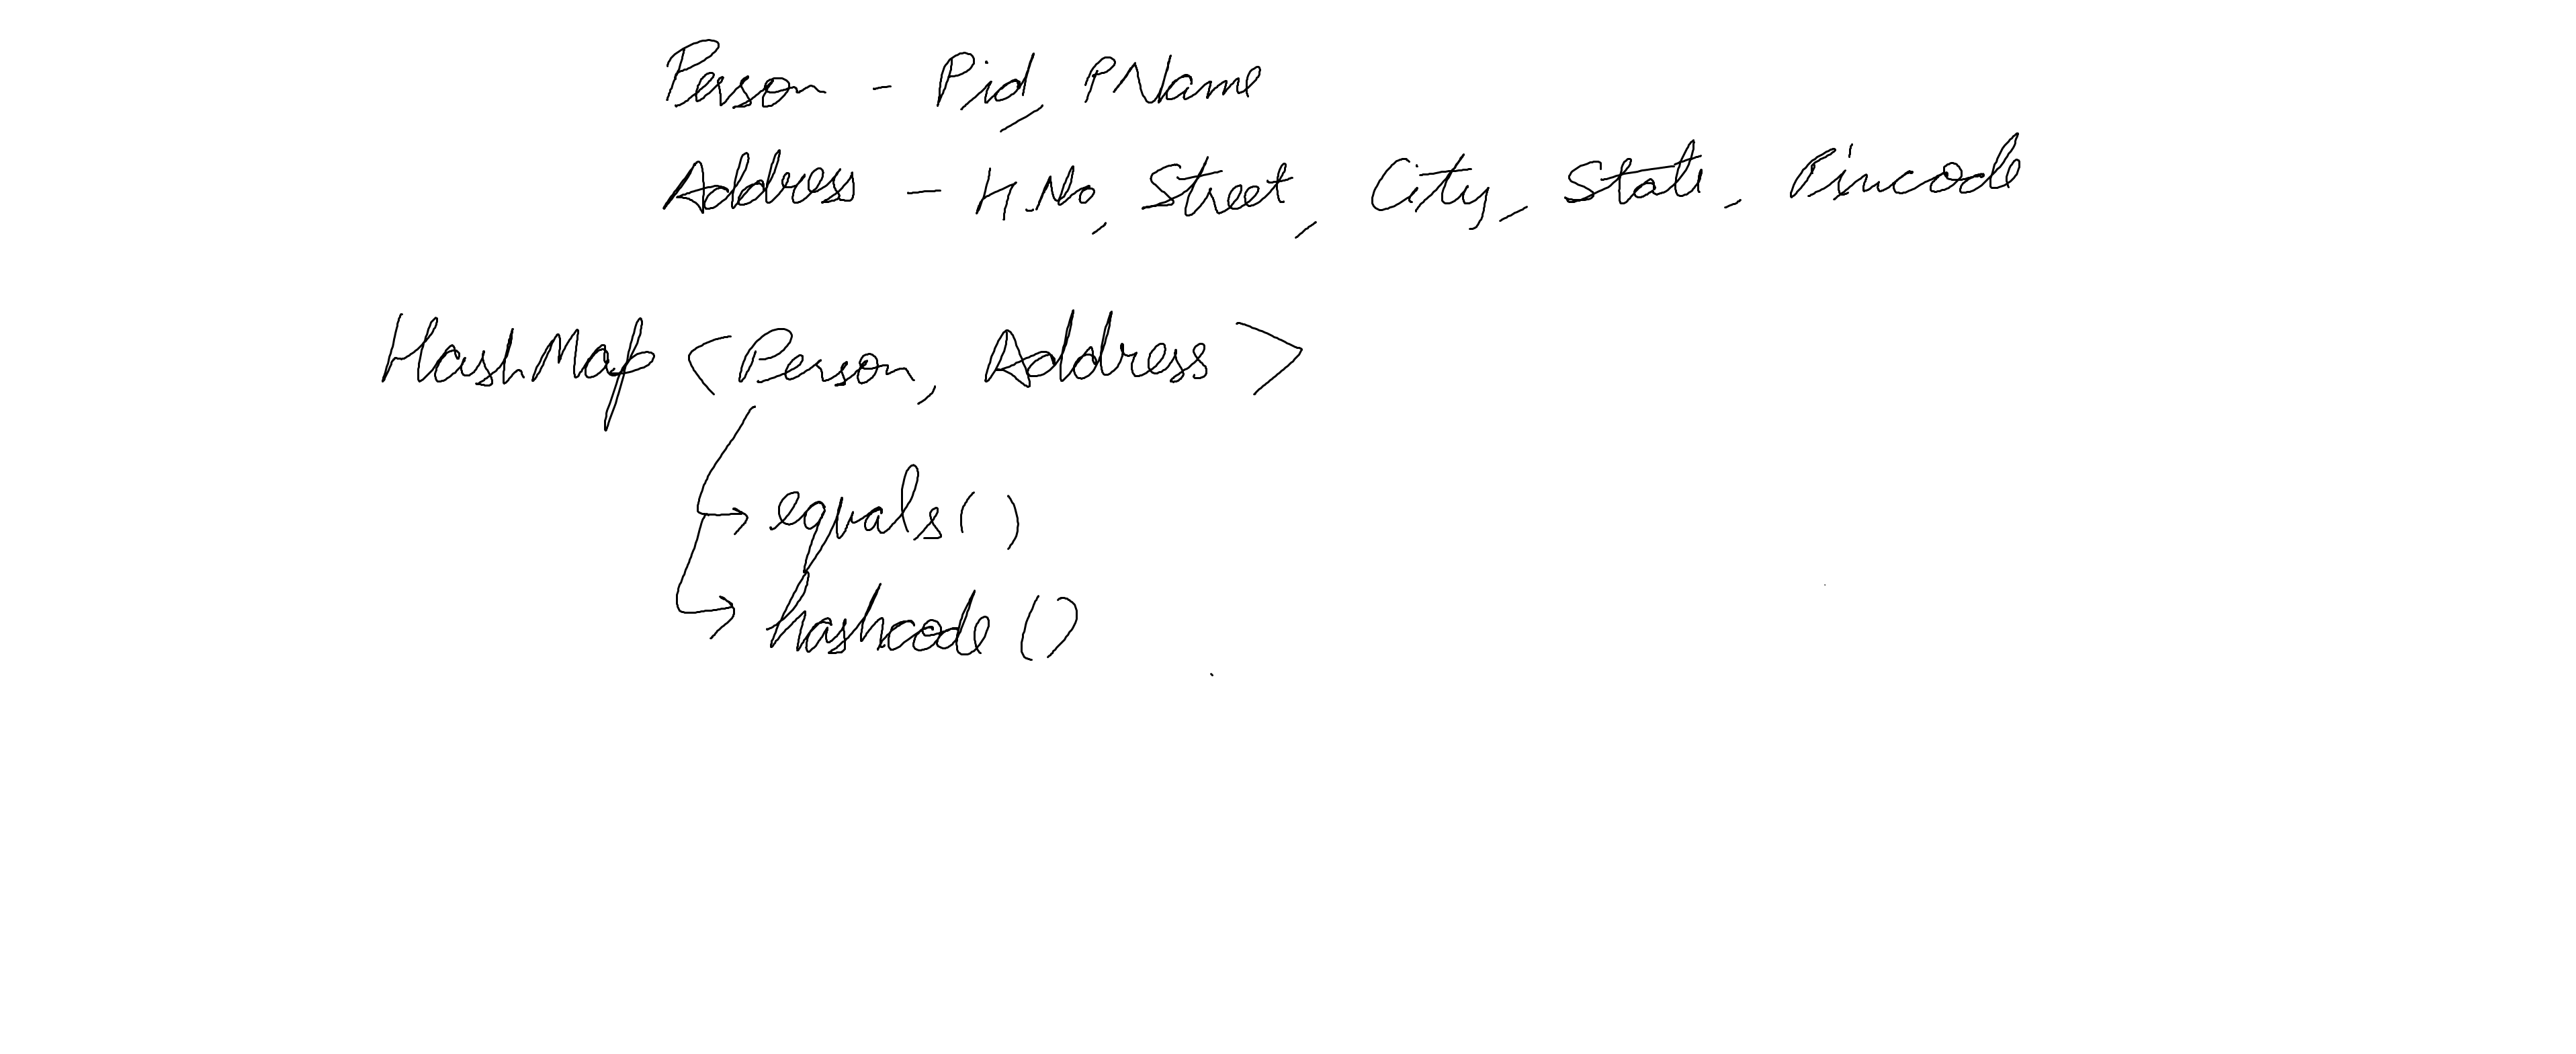 Person - Pid, PName
Address - H.No, Street, City, State, Pincode
HashMap <Person, Address>
equals()
hashcode()